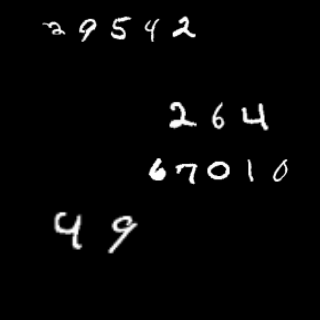 29542
264
67010
49